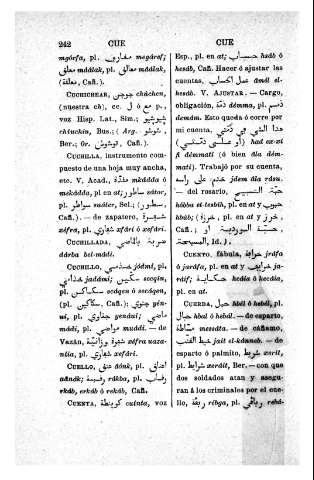 242 CUE CUE
mgórfa, pl. مغارف megáref;
pl. معالق mdálak,
Cañ.).
CUCHICHEAR, چوچن chúchen,
(nuestra ch), cc. ل ó مع p.,
voz Hisp. Lat., Sim.;
chiuchiu, Bus.; (Arg. شوشو,
Ber.; Or. شوش, Cañ.).
CUCHILLA, instrumento com-
puesto de una hoja muy ancha,
etc. V. Acad.,
mekádda, pl. en at; ساطور sátor,
pl. سواطير suáter, Sel.; (سطور,
Cañ.).— de zapatero, شفرة
xófra, pl. شفاري xfári ó xefari.
CUCHILLADA, ضربة بالماضي
dárba bel-máddi.
CUCHILLO, pl.
سكين secquin,
pl. سكاكن sceáquen ó secáquen,
(pl. سكاكين, Cañ.); جنوي gén-
ui, pl. جناوي genáui; ماضي
mádi, pl. مواضي muddi.— de
Vazán, شفرة وزانية xófra uaza-
nía, pl. شفاري xefári.
CUELLO, عنق áónk, pl.
aánák; رقبة rákba, pl. رقاب
rkáb, erkáb ó rekáb, Cañ.
CUENTA, كوينطة cuinta, voz
Esp., pl. en at; حساب hsáb ó
hesáb, Cañ. Hacer ó ajustar las
cuentas, عمل الحساب ámél el-
hesáb. V. AJUSTAR.— Cargo,
obligación, ذمة démma, pl. ذمم
demám. Esto queda ó corre por
mi cuenta, هذا الشي في ذمتي
had ex-xi
fi démmati (ó bien ála dém-
mati). Trabajó por su cuenta,
خدم على راسه jdem ála rásu.
— del rosario,
hábba et-tesbih, pl. en at y حبوب
hbúb; (خرزة, pl. en at y خرز,
Cañ.;
المسبحة, Id.).
CUENTO, fábula, خرافة jráfa
ó jaráfa, pl. en at y خرايف ja-
ráif; حكاية hcáia ó hecáia,
pl. en at.
CUERDA, حبل hbál ó hebál, pl.
حبال hbál ó hebál.— de esparto,
messdta.— de cáñamo,
خيط القنب jait el-kánneb.— de
esparto ó palmito, شريط xerit,
pl. شرايط xeráit, Ber.— con que
dos soldados atan y asegu-
ran á los criminales por el cue-
llo, ربقة ribga, pl.